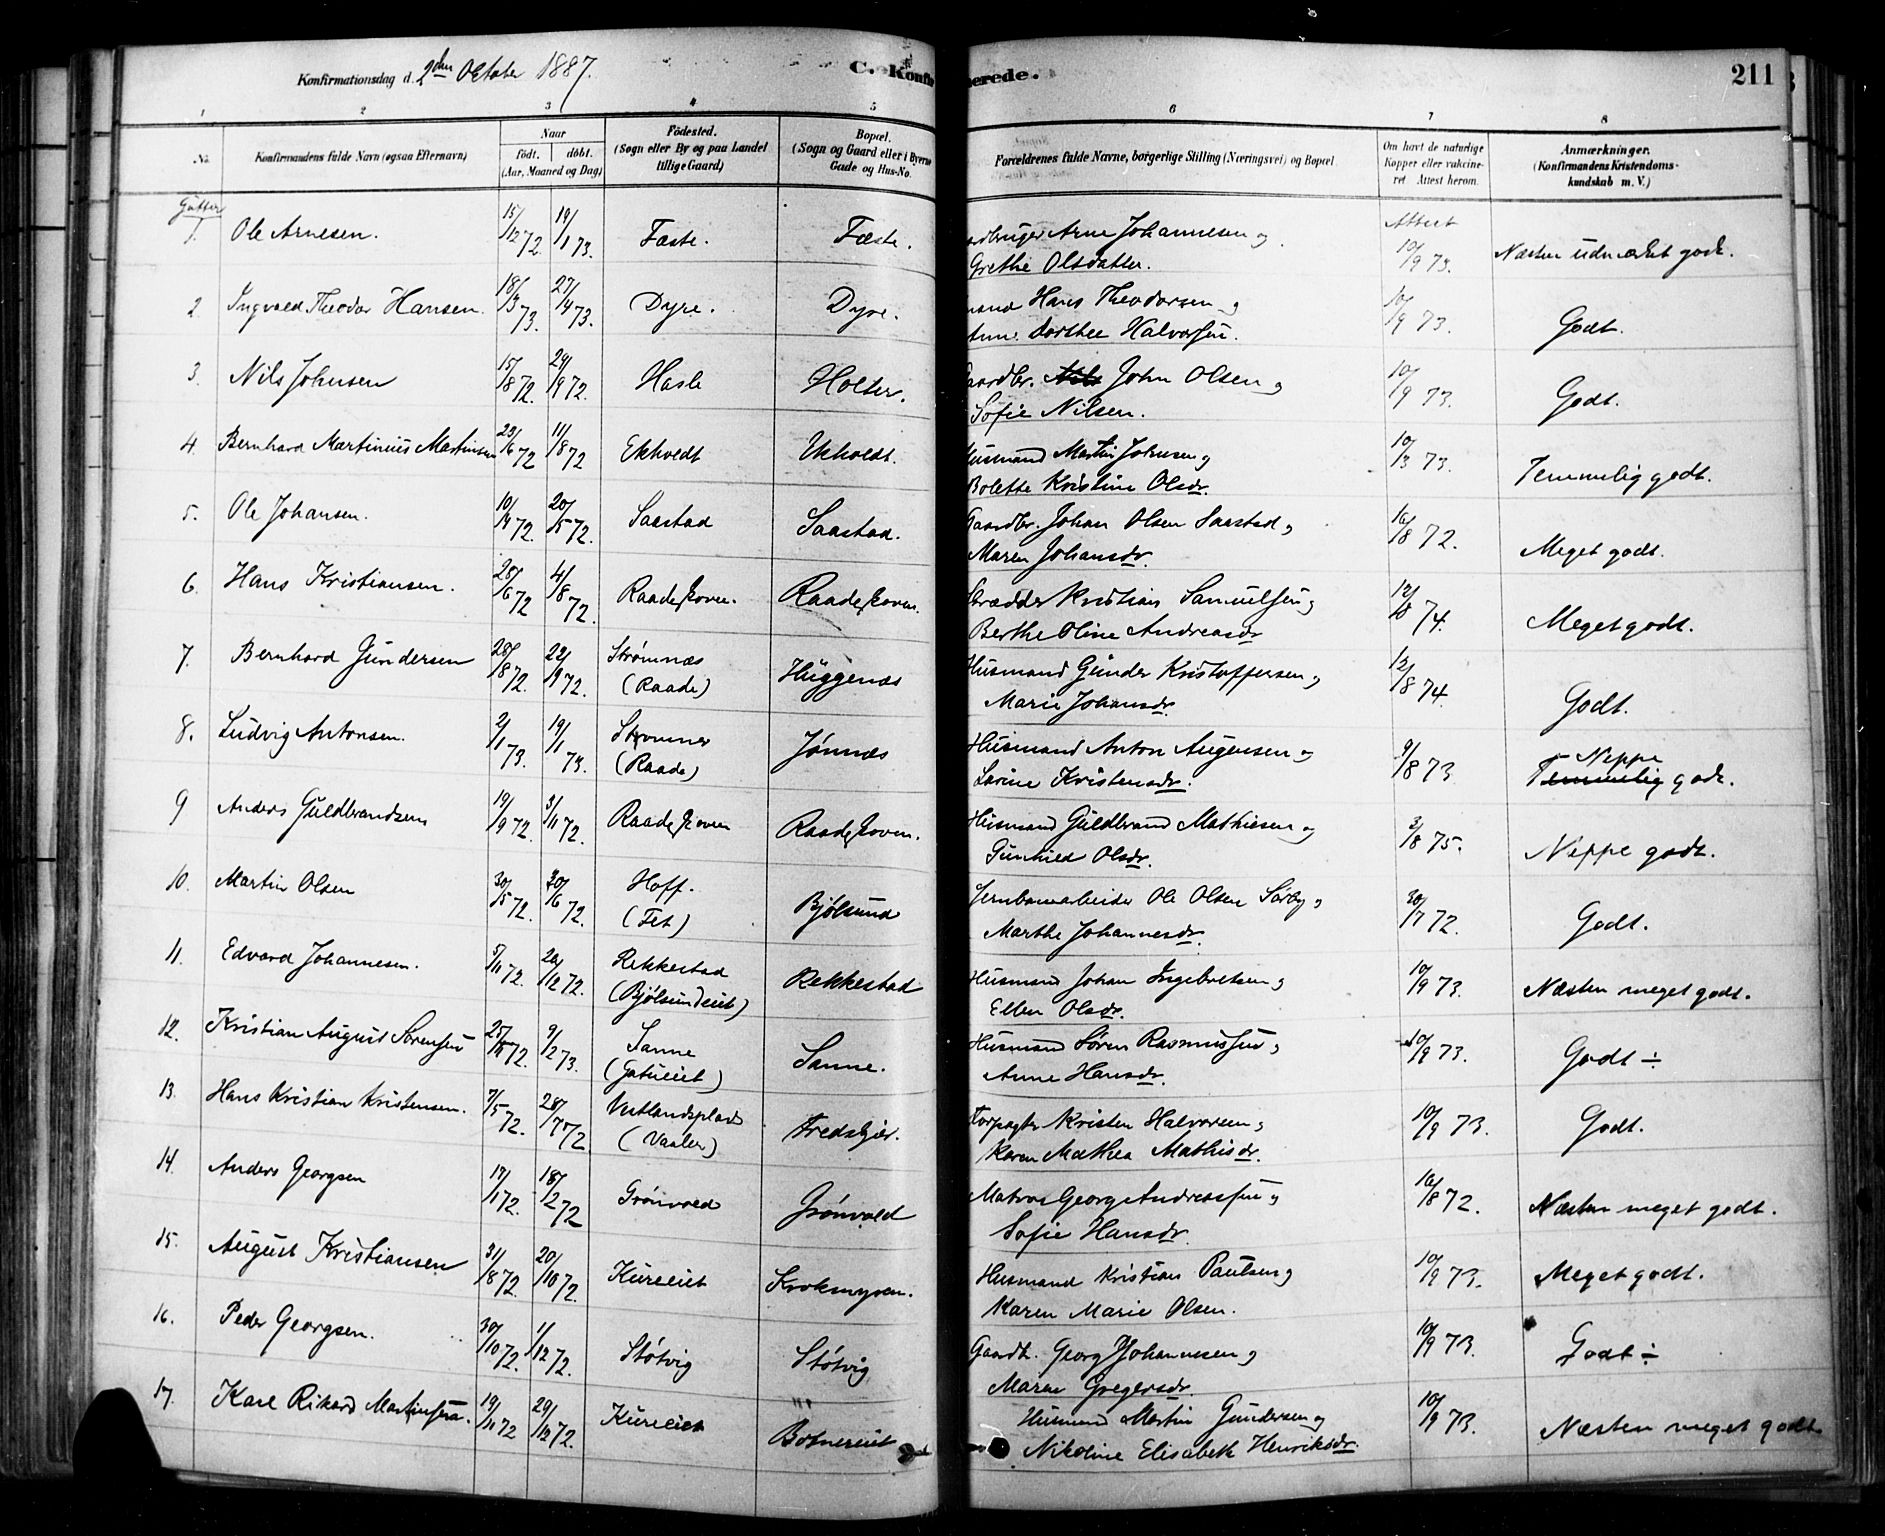 Konfirmationsdag d. 2den Oktober 1887.
C. Konfir merede.
211
1 2 3 4 5 6 7 8
No.
Konfirmandens fulde Navn (ogsaa Efternavn)
Naar
födt. döbt.
(Aar, Maaned og Dag)
Födested.
(Sogn eller By og paa Landet
tillige Gaard)
Bopæl.
(Sogn og Gaard eller i Byerne
Gade og Hus-No.
Forældrenes fulde Navne, borgerlige Stilling (Næringsvei) og Bopæl
Om havt de naturlige
Kopper eller vakcine-
ret Attest herom.
Anmærkninger.
(Konfirmandens Kristendoms-
kundskab m. V.)
Gutter
1. Ole Arnesen. 15/12 72. 19/1 73. Fæste. Fæste. Arne Johannesen og Attest 10/9 73. Næsten udmærket godt.
Grethe Olsdatter.
2. Ingvald Theodor Hansen. 18/3 73. 27/4 73. Dyre. Dyre. Hans Theodorsen og 10/9 73. Godt.
Dorthee Halvorsen.
3. Nils Johnsen 15/8 72. 29/9 72. Hasle Holter. Gaardbr. Nils John Olsen og 10/9 73. Godt.
Sofie Nilsen.
4. Bernhard Martinius Martinsen 23/6 72 11/8 72 Ekholdt Ekholdt. Husmand Martin Johnsen og 10/3 73. Temmelig godt.
Bolette Kristine Olsdr.
5. Ole Johansen. 10/4 72. 20/5 72. Saastad Saastad. Gaardbr. Johan Olsen Saastad og 16/8 72. Meget godt.
Maren Johansdr.
6. Hans Kristiansen. 28/6 72 4/8 72. Raadeskoven. Raadeskoven. Skrædder Kristian Samuelsen og 12/8 74. Meget godt.
Berthe Oline Andreasdr
7. Bernhard Gundersen 28/8 72. 22/9 72. Strømnæs Huggenæs Husmand Gunder Kristoffersen og 12/8 74. Godt.
(Raade) Marie Johansdr.
8. Ludvig Antonsen. 2/1 73. 19/1 73. Strømnes Jønnæs Husmand Anton Augensen og 9/8 73 Neppe
(Raade) Larine Kristensdr. Temmelig godt.
9 Anders Guldbrandsen 19/9 72. 3/11 72. Raadeskoven Raadeskoven. Husmand Guldbrand Mathisen og 3/8 75. Neppe godt.
Gunhild Olsdr.
10. Martin Olsen 30/5 72. 30/6 72. Hoff. Bjølsund Jernbanearbeider Ole Olsen Sørby og 30/7 72. Godt.
(Fet) Marthe Johannesdr.
11. Edvard Johannesen. 5/11 72. 26/12 72. Rekkestad Rekkestad Husmand Johan Ingebretsen og 10/9 73. Næsten meget godt.
(Bjølsundeiet) Ellen Olsdr.
12. Kristian August Sørensen 25/11 72. 9/2 73. Sanne Sanne. Husmand Søren Rasmussen og 10/9 73. Godt ÷
(Gatueiet) Anne Hansdr.
13. Hans Kristian Kristensen. 7/5 72. 28/7 72. Vestlandsplads Fredskjær. Forpagter Kristen Halvorsen og 10/9 73. Godt.
(Vaaler) Karen Mathea Mathisdr.
14. Anders Georgsen 17/1 72. 18/2 72 Grønvold Grønvold Matros Georg Andreassen og 16/8 72. Næsten meget godt.
Sofie Hansdr.
15. August Kristiansen 31/8 72. 20/10 72. Kureeiet Krokmyren. Husmand Kristian Paulsen og 10/9 73. Meget godt.
Karen Marie Olsen.
16. Peder Georgsen. 30/10 72. 1/12 72. Støtvig Støtvig Gaardb. Georg Johannesen og 10/9 73. Godt ÷
Maren Gregersdr.
17. Karl Rikard Martinsen. 19/11 72 29/12 72. Kureeiet Botnereiet Husmand Martin Gundersen og 10/9 73. Næsten meget godt
Nikoline Elisabeth Henriksdr.